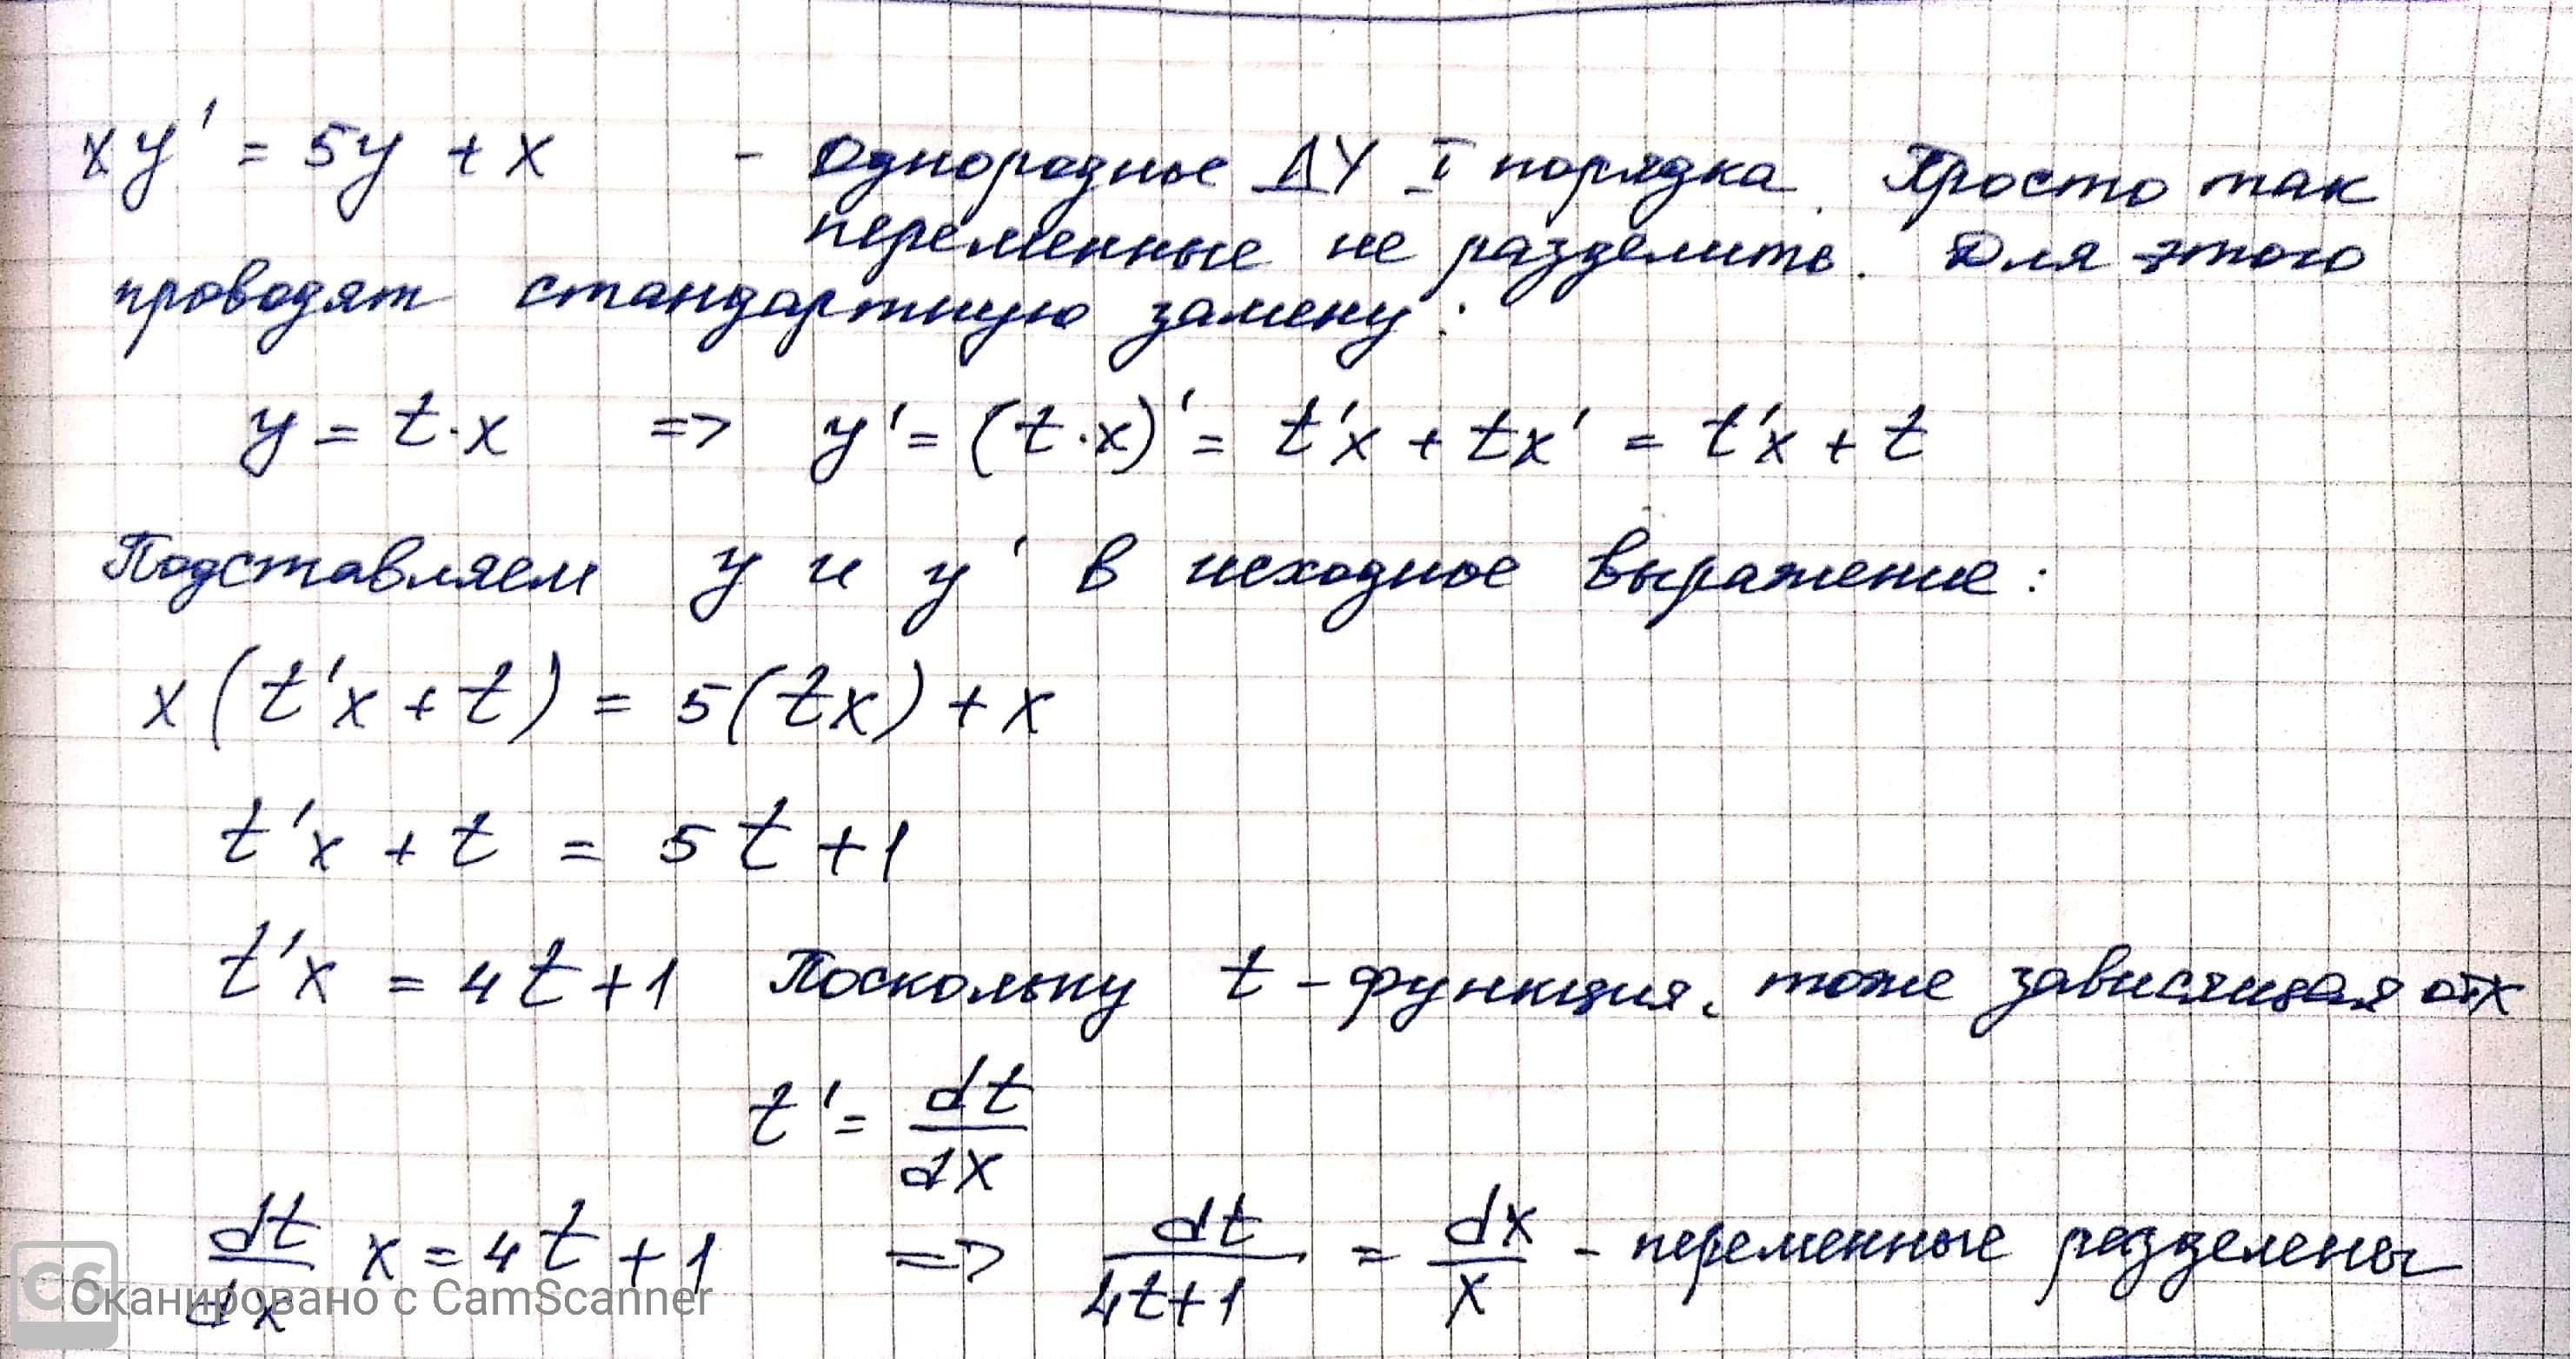 xy' = 5y + x - Однородные ДУ I порядка. Просто так
переменные не разделить. Для этого
проводят стандартную замену:
y = t·x => y' = (t·x)' = t'x + tx' = t'x + t
Подставляем y и y' в исходное выражение:
x(t'x + t) = 5(tx) + x
t'x + t = 5t + 1
t'x = 4t + 1 Поскольку t - функция, тоже зависящая от x
t' = dt/dx
dt/dx x = 4t + 1 => dt/4t+1 = dx/x - переменные разделены
CS Сканировано с CamScanner